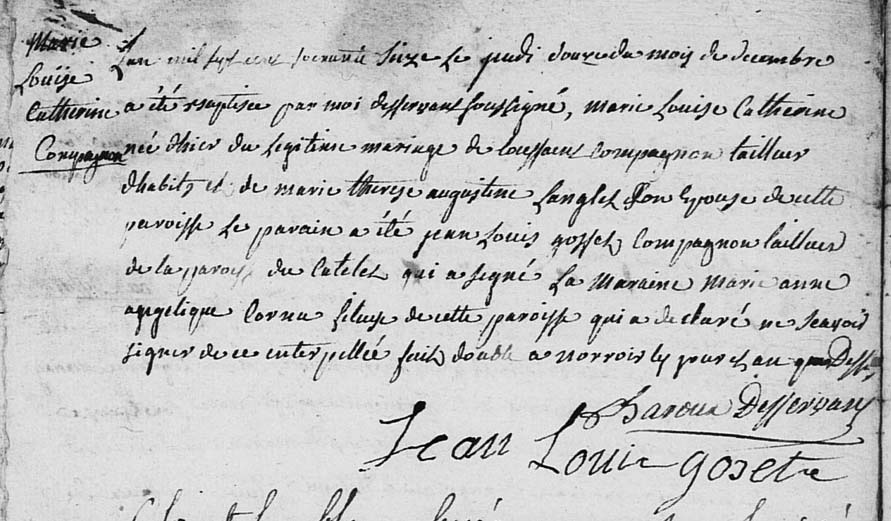 Marie
Louise
Catherine
Compagnon
L'an mil sept cent soixante seize le jeudi douze du mois de decembre
a été baptisée par moi desservant soussigné, marie Louise Catherine
née d'hier du legitime mariage de toussaint compagnon tailleur
d'habits et de marie therese augustine Langlet son Epouse de cette
paroisse le parain a été jean Louis gosset compagnon tailleur
de la paroisse du catelet qui a signé La Maraine marie anne
angelique Cornu fileuse de cette paroisse qui a declaré ne scavoir
signer de ce interpellée fait double a norroir les jour et an que Dessus
Desservant
Jean Louis gosete